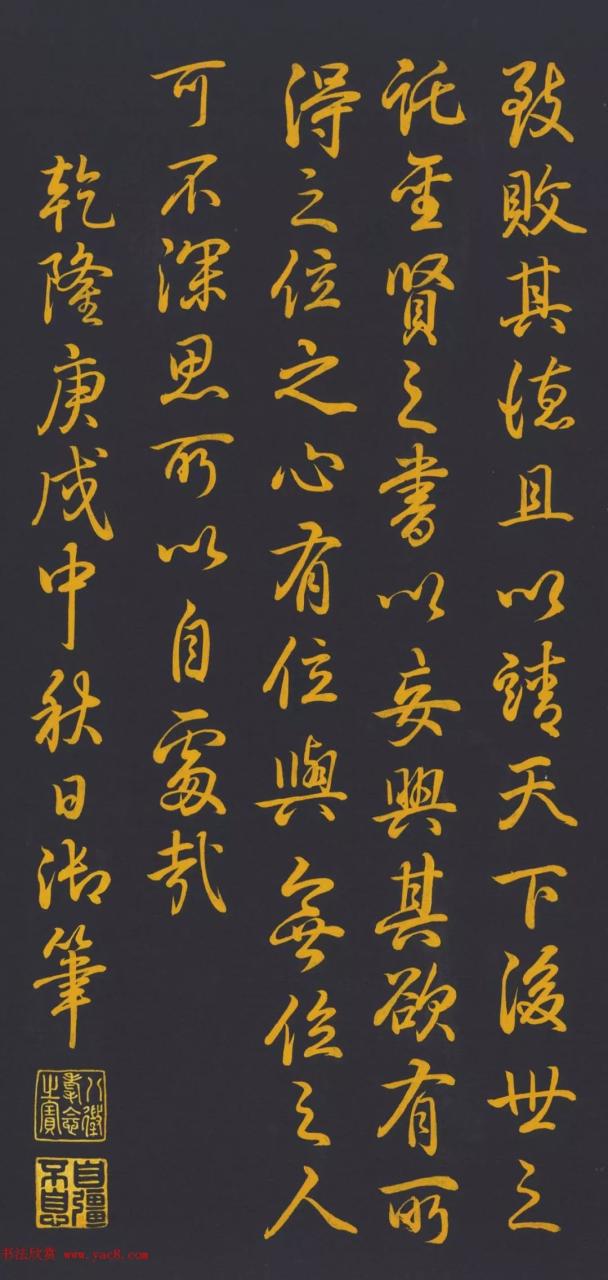 致敗其德且以靖天下後世之
託聖賢之書以妄興其欲有所
得之位之心有位與無位之人
可不深思所以自處哉
乾隆庚戌中秋日御筆
八徵
耄念
之寶
自彊
不息
书法欣赏 www.yac8.com